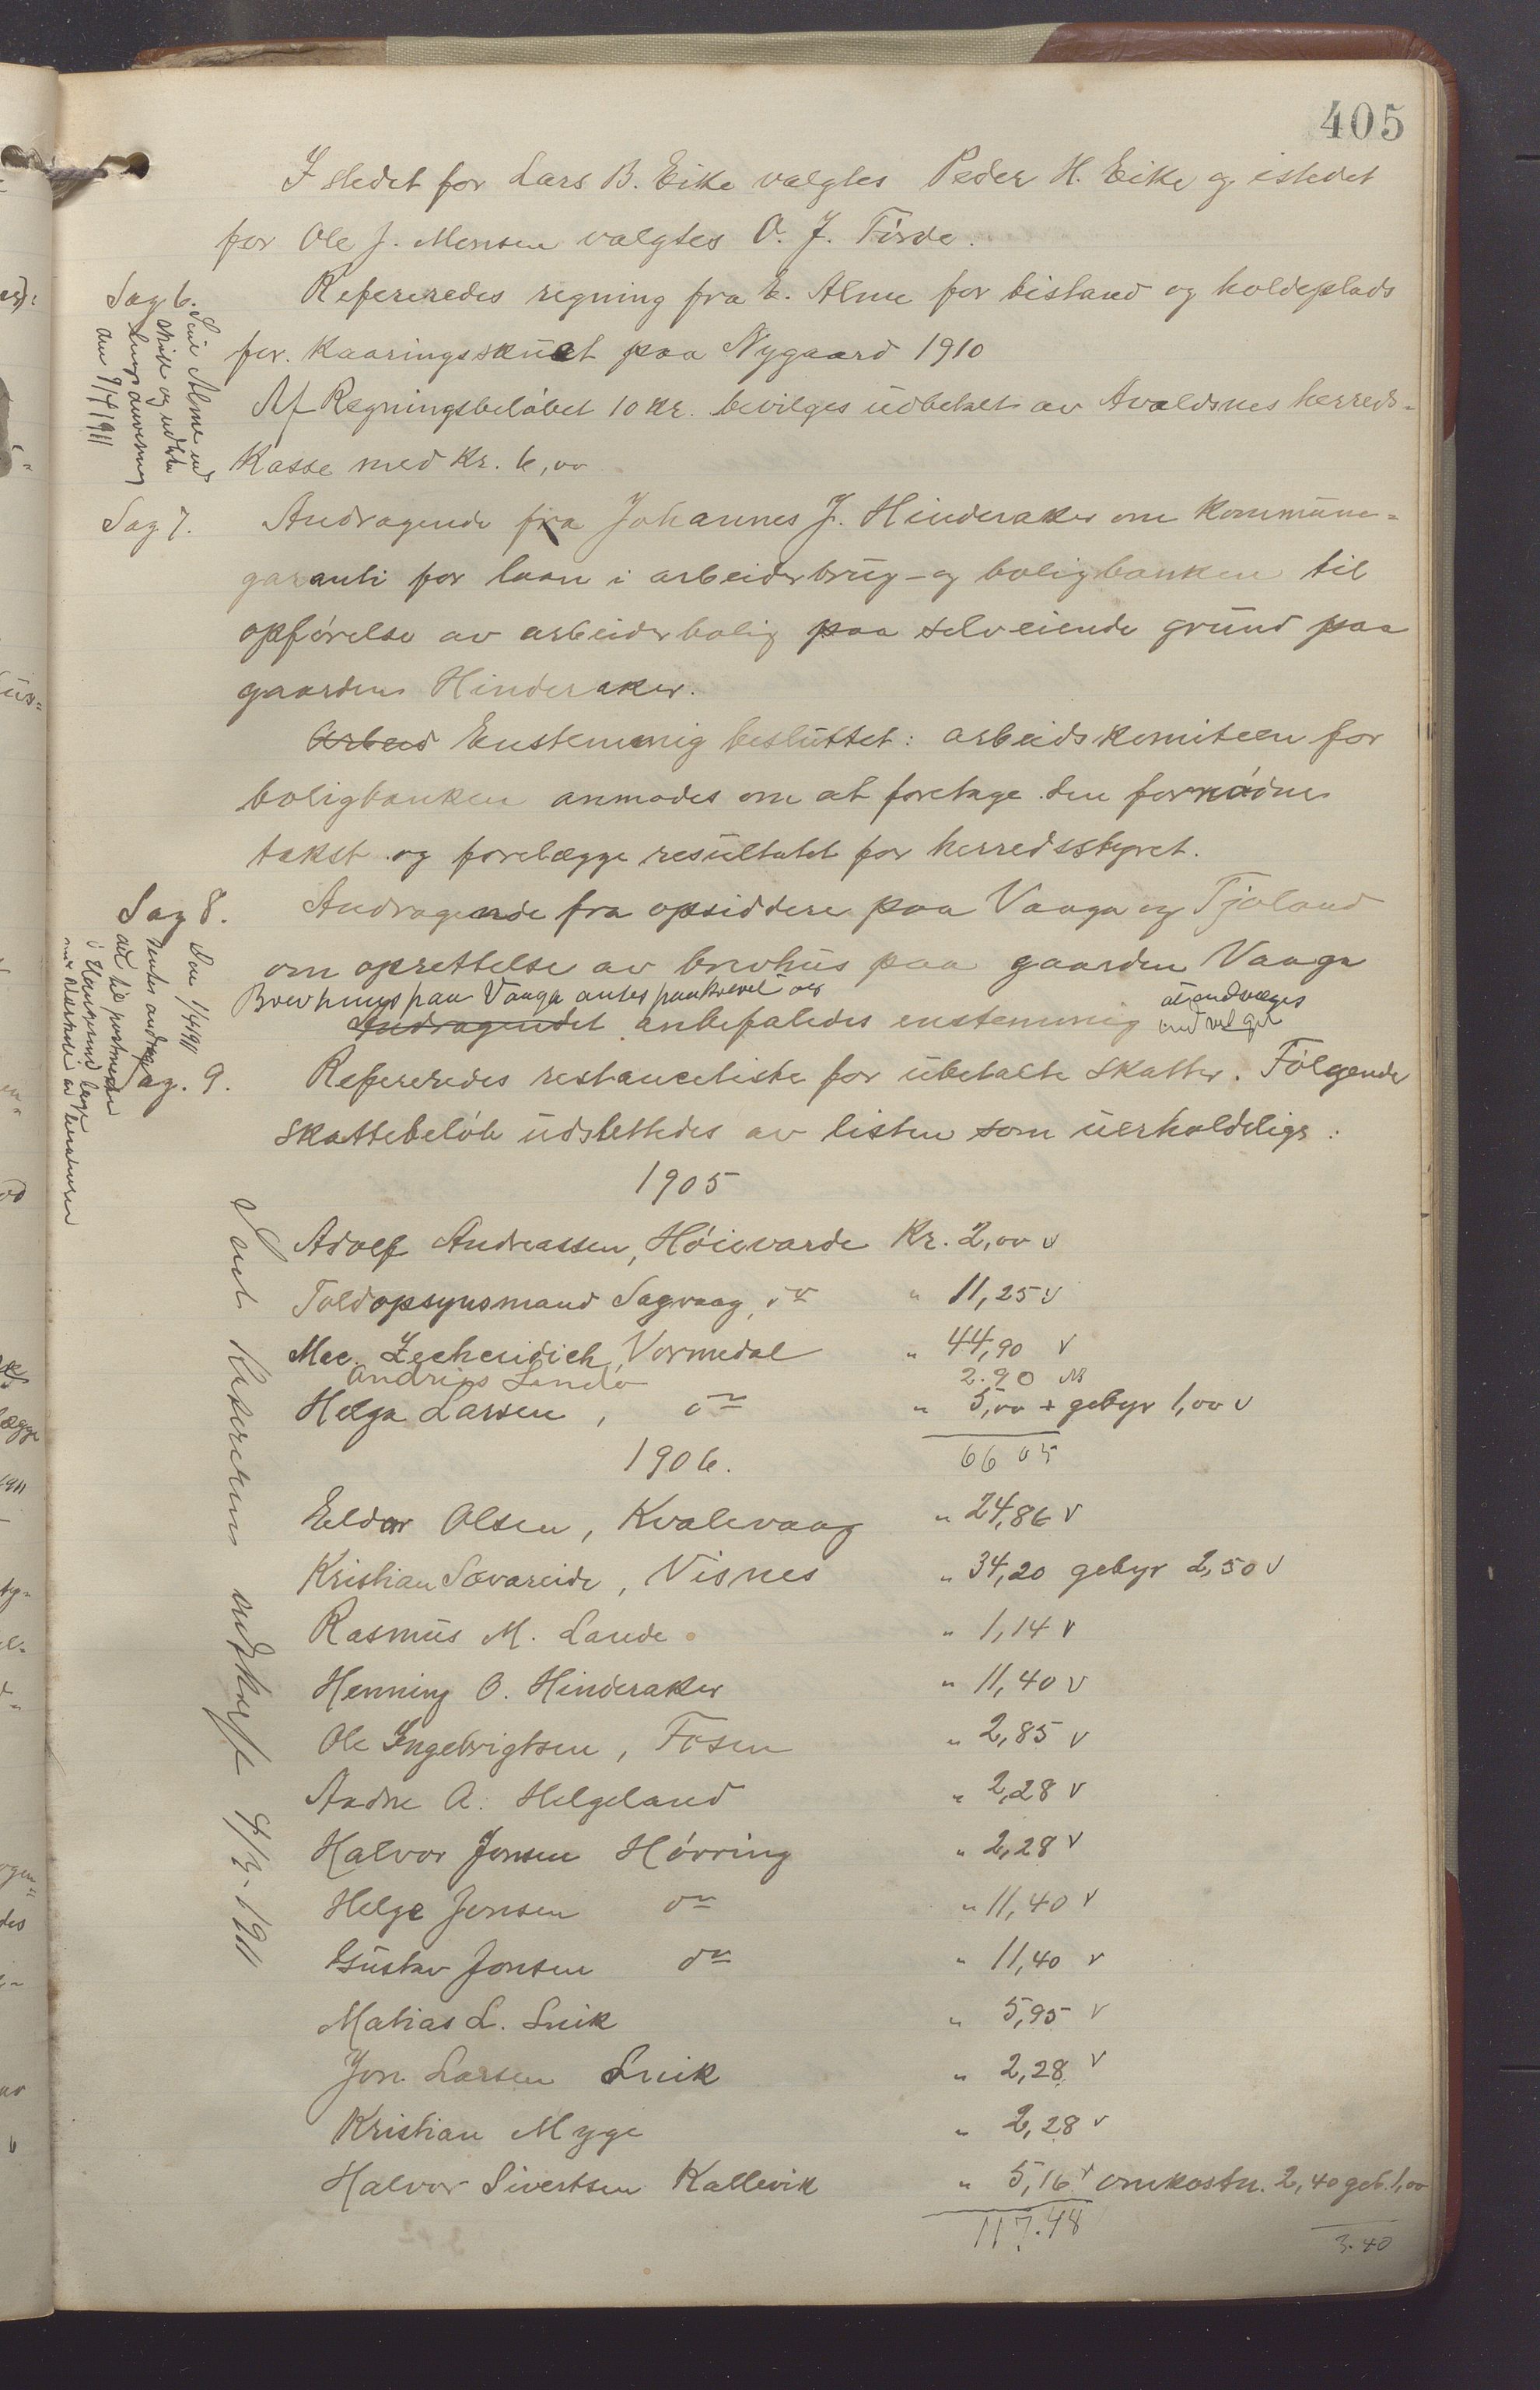 405
I stedet for Lars B. Eike valgtes Peder H. Eike og istedet
for Ole J. Monsen valgtes O. J. Förde.
Sag 6. Refereredes regning fra E. Alme for bistand og holdeplads
for kaaringsskuet paa Nygaard 1910
Af Regningsbeløbet 10 kr. bevilges udbetalt av Avaldsnes herreds-
kasse med Kr. 6,00
den 9/4 1911
Sag 7. Andragende fra Johannes J. Hinderaker om kommune-
garanti for laan i arbeiderbrug- og boligbanken til
opførelse av arbeiderbolig paa selveiende grund paa
gaarden Hinderaker.
Arbeid Enstemmig besluttet: arbeidskomiteen for
boligbanken anmodes om at foretage den fornødne
takst og forelægge resultatet for herredsstyret.
Sag 8. Andragende fra opsiddere paa Vaaga og Tjøland
om oprettelse av brevhus paa gaarden Vaaga
Brevhuus paa Vaaga antes paakrævet og
Andragendet anbefaledes enstemmig
Den 1/4 1911
Sag. 9. Refereredes restanceliste for ubetalte skatter. Følgende
skattebeløb udslettedes av listen som uerholdelige:
1905
Adolf Andreassen, Höievarde Kr. 2,00 v
Toldopsynsmand Sagvaag, do " 11,25 v
Mec. Zechenidich Vormedal " 44,90 v
Andreas Lindø 2.90
Helga Larsen, do " 5,00 + gebyr 1,00 v
66 05
1906.
Eldar Olsen, Kvalevaag " 24,86 v
Kristian Sövareide, Visnes " 34,20 gebyr 2,50 v
Rasmus M. Lande " 1,14 v
Henning O. Hinderaker " 11,40 v
Ole Ingebrigtsen, Fosen " 2,85 v
Aadne A. Helgeland " 2,28 v
Halvor Jonsen Hövring " 2,28 v
Helge Jensen do " 11,40 v
Gustav Jonsen do " 11,40 v
Matias L. Snik " 5,95 v
Jon Larsen Snik " 2,28 v
Kristian Myge " 2,28 v
Halvor Sivertsen Kallevik " 5,16 v omkostn. 2,40 geb. 1,00
117.48
3.40
Sent Kasereren udskrift 4/3-1911